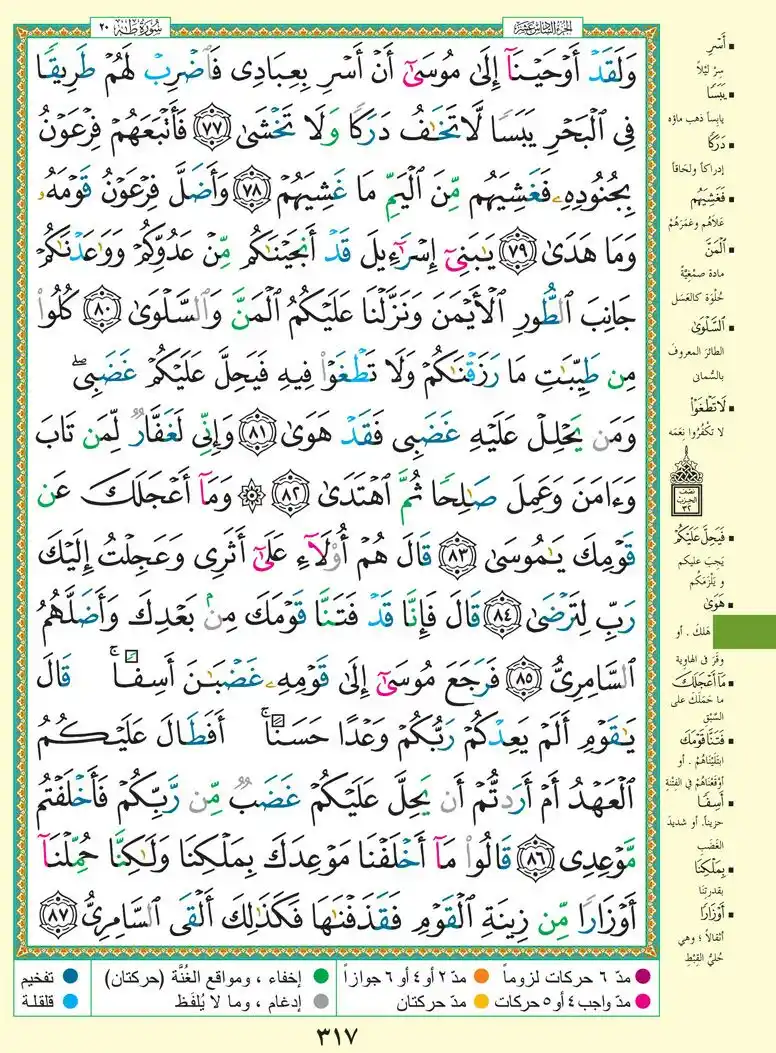 سُورَةُ طه ٢٠
الجزء السادس عشر
وَلَقَدْ أَوْحَيْنَآ إِلَىٰ مُوسَىٰٓ أَنْ أَسْرِ بِعِبَادِى فَٱضْرِبْ لَهُمْ طَرِيقًا
فِى ٱلْبَحْرِ يَبَسًا لَّا تَخَٰفُ دَرَكًا وَلَا تَخْشَىٰ ٧٧ فَأَتْبَعَهُمْ فِرْعَوْنُ
بِجُنُودِهِۦ فَغَشِيَهُم مِّنَ ٱلْيَمِّ مَا غَشِيَهُمْ ٧٨ وَأَضَلَّ فِرْعَوْنُ قَوْمَهُۥ
وَمَا هَدَىٰ ٧٩ يَٰبَنِىٓ إِسْرَٰٓءِيلَ قَدْ أَنجَيْنَٰكُم مِّنْ عَدُوِّكُمْ وَوَٰعَدْنَٰكُمْ
جَانِبَ ٱلطُّورِ ٱلْأَيْمَنَ وَنَزَّلْنَا عَلَيْكُمُ ٱلْمَنَّ وَٱلسَّلْوَىٰ ٨٠ كُلُوا۟
مِن طَيِّبَٰتِ مَا رَزَقْنَٰكُمْ وَلَا تَطْغَوْا۟ فِيهِ فَيَحِلَّ عَلَيْكُمْ غَضَبِى ۖ
وَمَن يَحْلِلْ عَلَيْهِ غَضَبِى فَقَدْ هَوَىٰ ٨١ وَإِنِّى لَغَفَّارٌ لِّمَن تَابَ
وَءَامَنَ وَعَمِلَ صَٰلِحًا ثُمَّ ٱهْتَدَىٰ ٨٢ ۞ وَمَآ أَعْجَلَكَ عَن
قَوْمِكَ يَٰمُوسَىٰ ٨٣ قَالَ هُمْ أُو۟لَآءِ عَلَىٰٓ أَثَرِى وَعَجِلْتُ إِلَيْكَ
رَبِّ لِتَرْضَىٰ ٨٤ قَالَ فَإِنَّا قَدْ فَتَنَّا قَوْمَكَ مِنۢ بَعْدِكَ وَأَضَلَّهُمُ
ٱلسَّامِرِىُّ ٨٥ فَرَجَعَ مُوسَىٰٓ إِلَىٰ قَوْمِهِۦ غَضْبَٰنَ أَسِفًا ۚ قَالَ
يَٰقَوْمِ أَلَمْ يَعِدْكُمْ رَبُّكُمْ وَعْدًا حَسَنًا ۚ أَفَطَالَ عَلَيْكُمُ
ٱلْعَهْدُ أَمْ أَرَدتُّمْ أَن يَحِلَّ عَلَيْكُمْ غَضَبٌ مِّن رَّبِّكُمْ فَأَخْلَفْتُم
مَّوْعِدِى ٨٦ قَالُوا۟ مَآ أَخْلَفْنَا مَوْعِدَكَ بِمَلْكِنَا وَلَٰكِنَّا حُمِّلْنَآ
أَوْزَارًا مِّن زِينَةِ ٱلْقَوْمِ فَقَذَفْنَٰهَا فَكَذَٰلِكَ أَلْقَى ٱلسَّامِرِىُّ ٨٧
أَسْرِ
سِرْ لَيْلاً
يَبَسًا
يابساً ذهب ماؤه
دَرَكًا
إدراكاً ولَحَاقاً
فَغَشِيَهُم
عَلَاهُم وغَمَرَهُمْ
ٱلْمَنَّ
مادة صمْغِيَّة
حُلْوَة كالعَسَل
ٱلسَّلْوَىٰ
الطائرَ المعروفَ
بالسُّمانى
لَا تَطْغَوْا۟
لا تكْفُرُوا نِعَمَه
نصف الحزب ٣٢
فَيَحِلَّ عَلَيْكُمْ
يَجِبَ عليكم
و يَلْزَمَكُم
هَوَىٰ
هَلَكَ . أو
وقَعَ فى الهاوِية
مَآ أَعْجَلَكَ
ما حَمَلَكَ على
السَّبْقِ
فَتَنَّا قَوْمَكَ
ابتَلَيْنَاهُمْ . أو
أوْقَعْنَاهُمْ فى الفتنَةِ
أَسِفًا
حزيناً. أو شديدَ
الغَضَبِ
بِمَلْكِنَا
بقدرتِنَا
أَوْزَارًا
أثقالاً ؛ وهي
حُلِيُّ القِبْطِ
مدّ ٦ حركات لزوماً
مدّ ٢ أو ٤ أو ٦ جوازاً
إخفاء ، ومواقع الغُنَّة (حركتان)
تفخيم
مدّ واجب ٤ أو ٥ حركات
مدّ حركتان
إدغام ، وما لا يُلفَظ
قلقلة
٣١٧